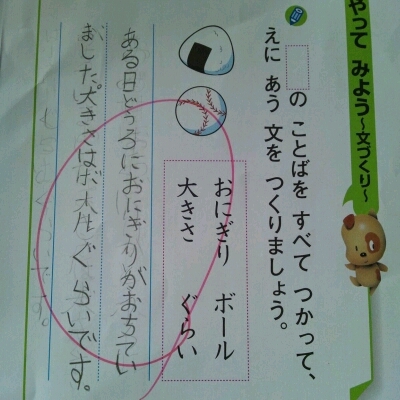 やって みよう～文づくり～
の ことばを すべて つかって、
えに あう 文を つくりましょう。
おにぎり ボール
大きさ ぐらい
ある日どうろにおにぎりがおちてい
ました。大きさはボールぐらいです。